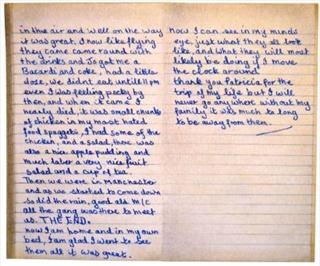 in the air and well on the way
it was great. I now like flying
they came came round with
the drinks and so got me a
Bacardi and coke, had a little
dose, we didnt eat untill 11pm
even I was feeling pecky by
then, and when it came I
nearly died, it was small chunks
of chicken in my most hated
food spaggeti, I had some of the
chicken, and a salad, there was
also a nice apple pudding, and
much later a very nice fruit
salad and a cup of tea.
Then we were in Manchester
and as we started to come down
so did the rain, good old M/C
all the gang was there to meet
us. THE END.
now I am home and in my own
bed, I am glad I went to see
them all it was great.
Now I can see in my minds
eye, just what they all look
like, and what they will most
likely be doing if I move
the clock around
thank you Patricia for the
trip of my life but I will
never go any where without my
family it was much to long
to be away from them.